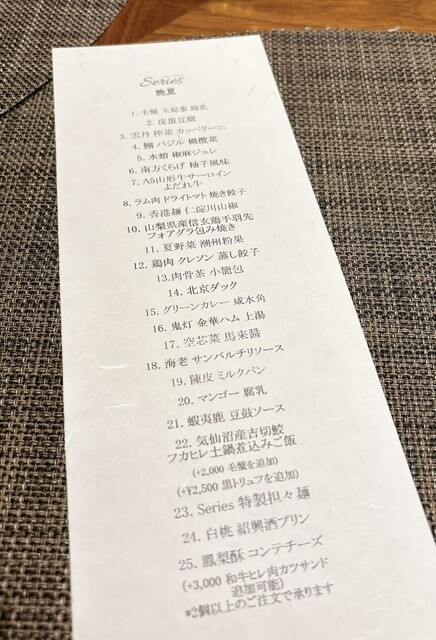 Series
晩夏
1. 毛蟹 玉蜀黍 腐乳
2. 皮蛋豆腐
3. 雲丹 搾菜 カッペリーニ
4. 鰯 バジル 橄欖菜
5. 水蛸 椒麻ジュレ
6. 南方くらげ 柚子風味
7. A5山形牛サーロイン
よだれ牛
8. ラム肉 ドライトマト 焼き餃子
9. 香港麺 仁淀川山椒
10. 山梨県産信玄鶏手羽先
フォアグラ包み焼き
11. 夏野菜 潮州粉果
12. 鶏肉 クレソン 蒸し餃子
13. 肉骨茶 小籠包
14. 北京ダック
15. グリーンカレー 咸水角
16. 鬼灯 金華ハム 上湯
17. 空芯菜 馬来醤
18. 海老 サンバルチリソース
19. 陳皮 ミルクパン
20. マンゴー 腐乳
21. 蝦夷鹿 豆豉ソース
22. 気仙沼産吉切鮫
フカヒレ土鍋煮込みご飯
(+2,000 毛蟹を追加)
(+¥2,500 黒トリュフを追加)
23. Series 特製担々麺
24. 白桃 紹興酒プリン
25. 鳳梨酥 コンテチーズ
(+3,000 和牛ヒレ肉カツサンド
追加可能)
*2個以上のご注文で承ります